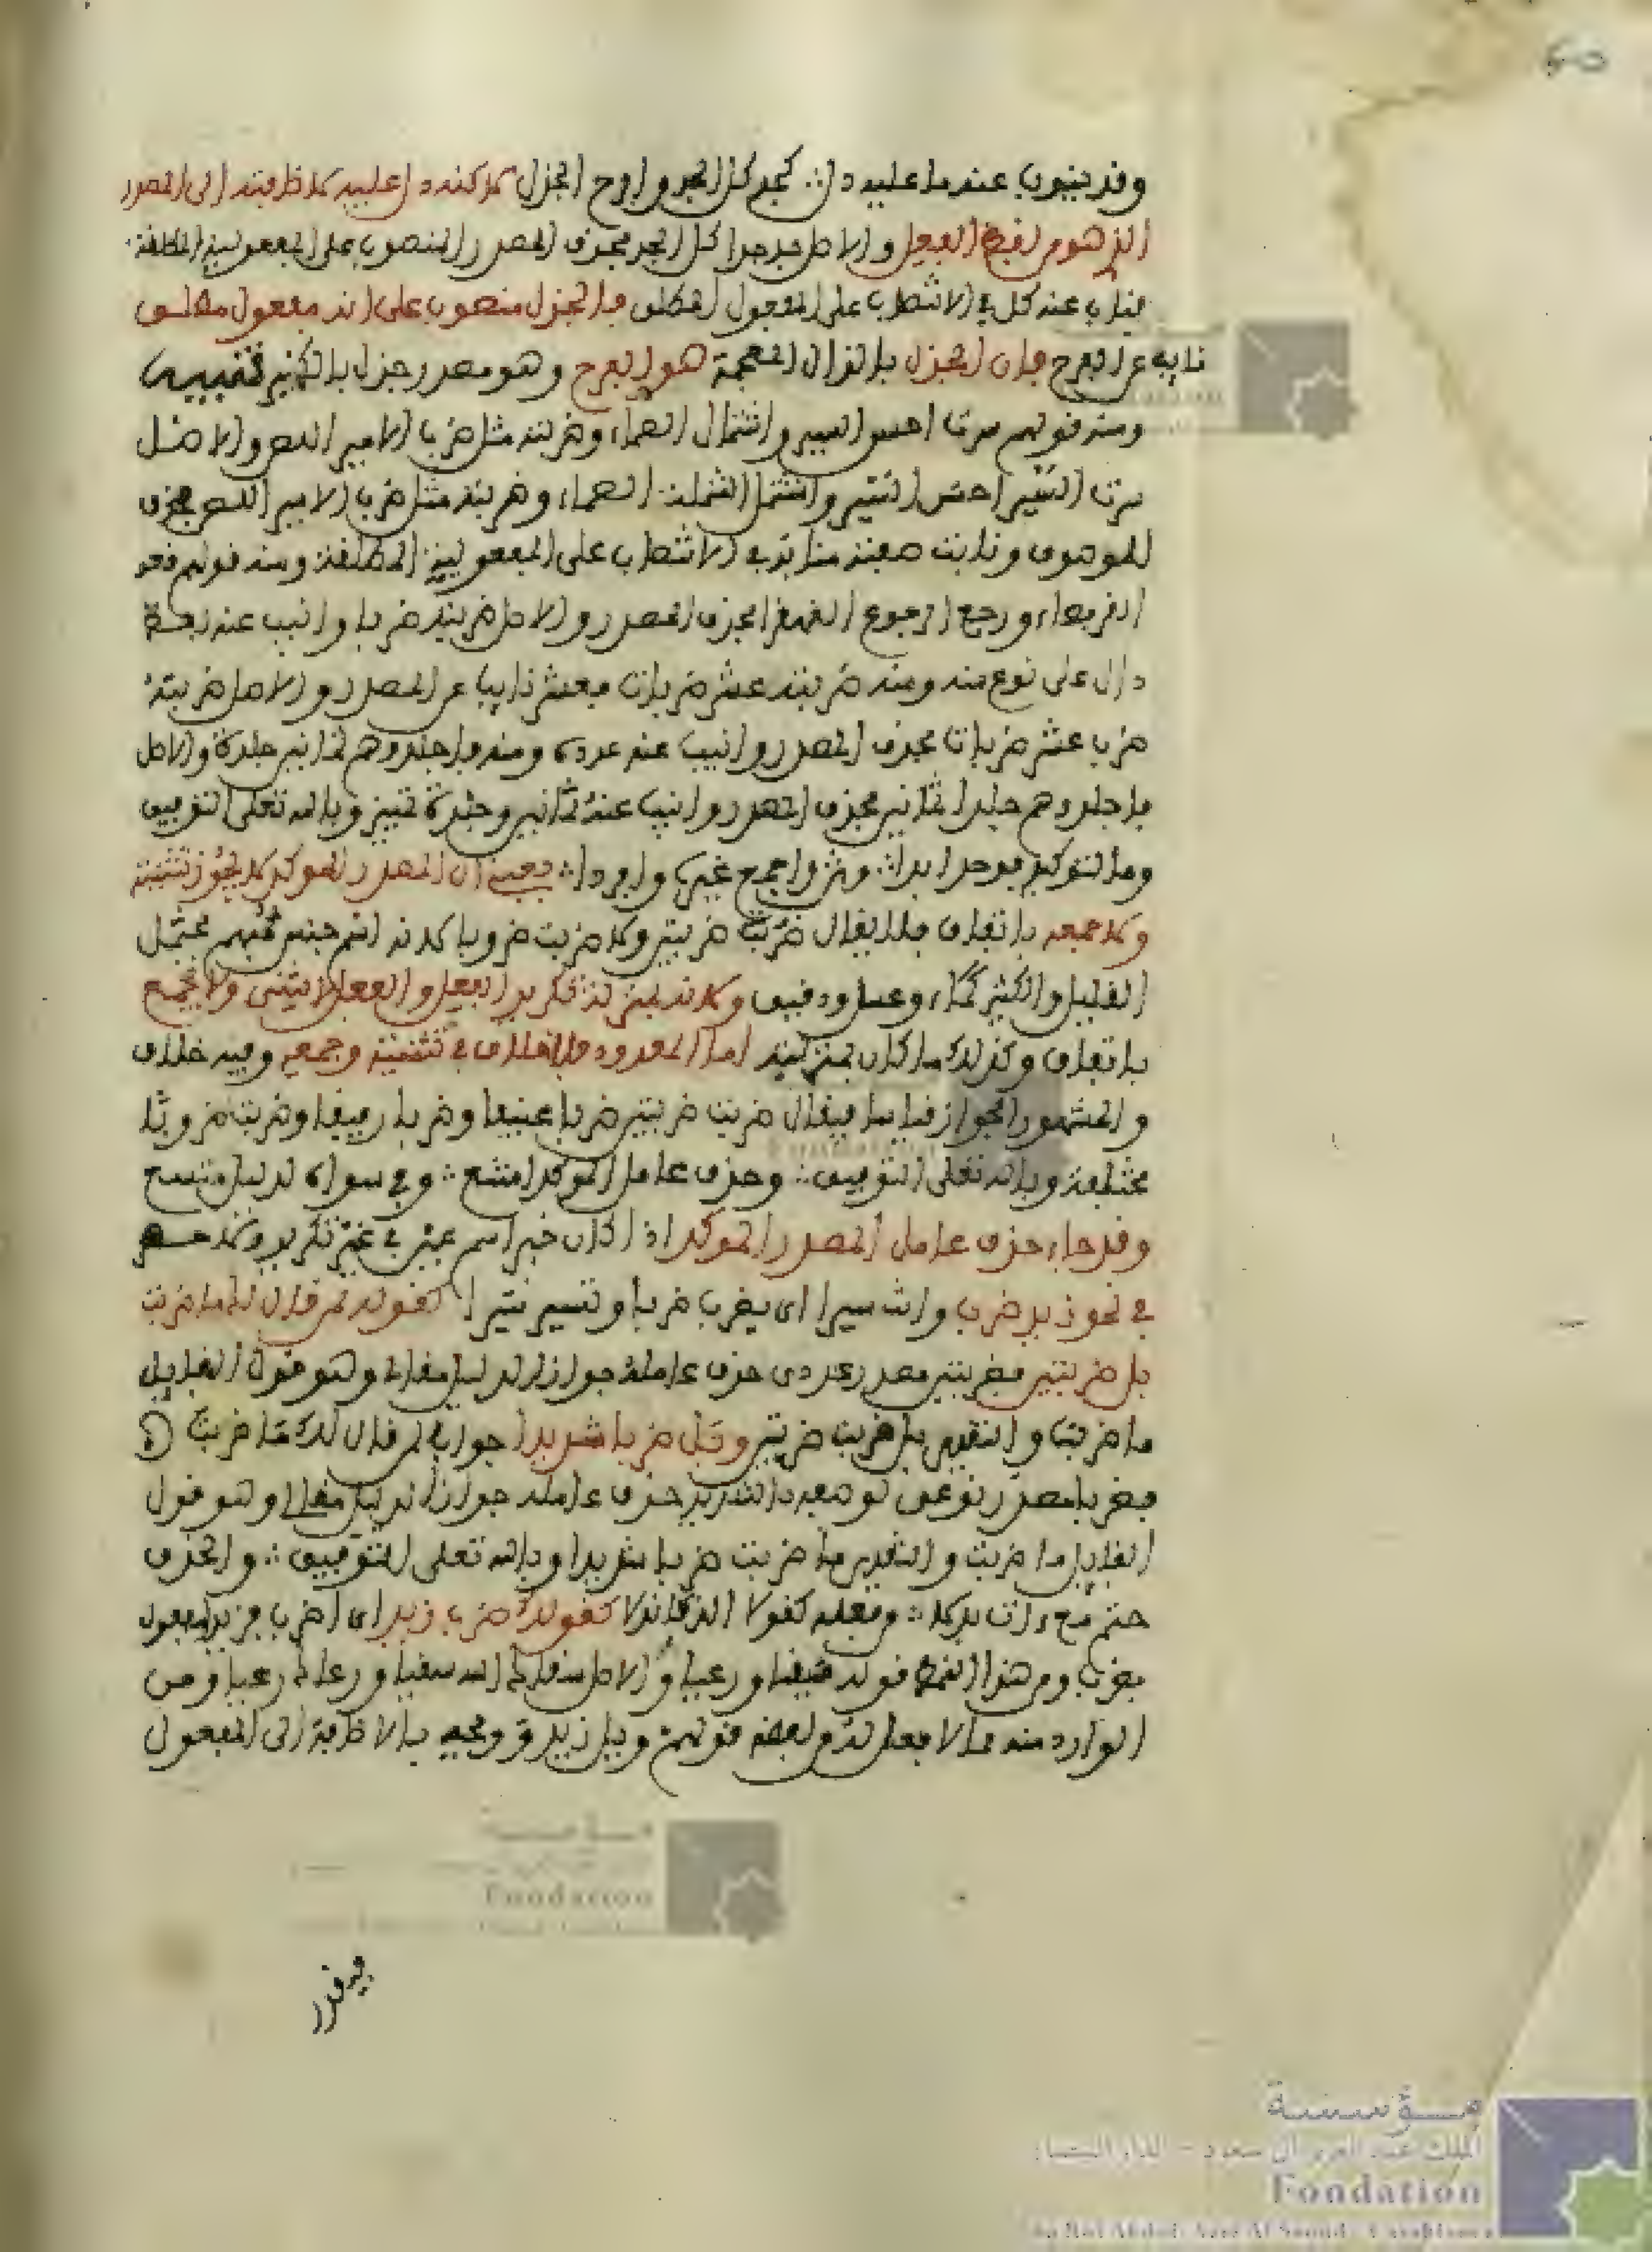 وقد ينوب عنه ما عليه دل ∴ كجد كل الجد وافرح الجذل كما كنه دا عليه كاضافته الى المصدر
الذي هو من لفظ الفعل والاصل فجد جدا كل الجد فحذف المصدر المنصوب على المفعولية المطلقة
فناب عنه كل في الانتصاب على المفعول المطلق فالجذل منصوب على انه مفعول مطلق
نايب عن الفرح فان الجذل بالذال المعجمة هو الفرح وهو مصدر جذل بالكسر تنبيه
ومنه قولهم سرت احسن السير واشتمال الصماء وضربته مثل ضرب الامير اللص والاصل
سرت السير احسن السير واشتمل الشملة الصماء وضربته مثل ضرب الامير اللص فحذف
الموصوف ونابت صفته منابه في الانتصاب على المفعولية المطلقة ومنه قولهم قعد
القرفصاء ورجع الرجوع القهقرا فحذف المصدر والاصل ضربته ضربا وانيب عنه لفظ
دال على نوع منه ومنه ضربته عشر ضربات فعشر نايبا عن المصدر والاصل ضربته
ضرب عشر ضربات فحذف المصدر وانيب عنه عدده ومنه فاجلدوهم ثمانين جلدة والاصل
فاجلدوهم جلدا ثمانين فحذف المصدر وانيب عنه ثمانين وجلدة تمييز وبالله تعلى التوفيق
وما لتوكيد فوحد ابدا ∴ وثن واجمع غيره وافردا ∴ يعني ان المصدر الموكد لا يجوز تثنيته
ولا جمعه باتفاق فلا يقال ضربت ضربتين ولا ضربت ضروبا لانه اسم جنس مبهم يحتمل
القليل والكثير كماء وعسل ودقيق ولانه بمنزلة تكرير الفعل والفعل لا يثنى ولا يجمع
باتفاق وكذلك ما كان بمنزلته اما المعدود فلا خلاف في تثنيته وجمعه وفيه خلاف
والمشهور الجواز قياسا فيقال ضربت ضربتين ضربا عنيفا وضربا رفيقا وضربت ضروبا
مختلفة وبالله تعلى التوفيق ∴ وحذف عامل الموكد امتنع ∴ وفي سواه لدليل متسع
وقد جاء حذف عامل المصدر الموكد اذا كان خبر اسم عين في غير تكرير ولا حصر
في نحو زيد ضربا وانت سيرا اى يضرب ضربا وتسير سيرا كقولك لمن قال لك ما ضربت
بل ضربتين فضربتين مصدر عددى حذف عامله جوازا لدليل مقالى وهو قول القايل
ما ضربت والتقدير بل ضربت ضربتين وبل ضربا شديدا جوابا لمن قال لك ما ضربت
فضربا مصدر نوعى لوصفه بالشديد حذف عامله جوازا لدليل مقالى وهو قول
القايل ما ضربت والتقدير بل ضربت ضربا شديدا وبالله تعلى التوفيق ∴ والحذف
حتم مع ءات بدلا ∴ من فعله كندلا الذ كاندلا كقولك ضربا زيدا اى اضرب فزيدا مفعول
بضربا ومن هذا النمط قولك سقيا ورعيا والاصل سقاك الله سقيا ورعاك رعيا ومن
الوارد منه ما لا فعل له من لفظه قولهم ويل زيد وويحه بالاضافة الى المفعول
فيقدر
مؤسسة
الملك عبد العزيز آل سعود - الدار البيضاء
Fondation
du Roi Abdul-Aziz Al Saoud - Casablanca